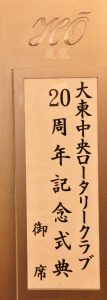 HŌ
鳳凰
大東中央ロータリークラブ
20周年記念式典
御席